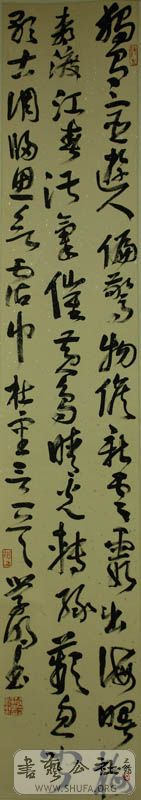 獨有宦遊人偏驚物候新雲霞出海曙梅
柳渡江春淑氣催黃鳥晴光轉綠蘋忽聞
歌古調歸思欲沾巾 杜審言 書
書藝公社
WWW.SHUFA.ORG